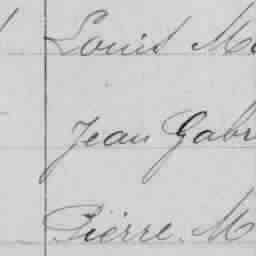 Louis M
Jean Gabr
Pierre M